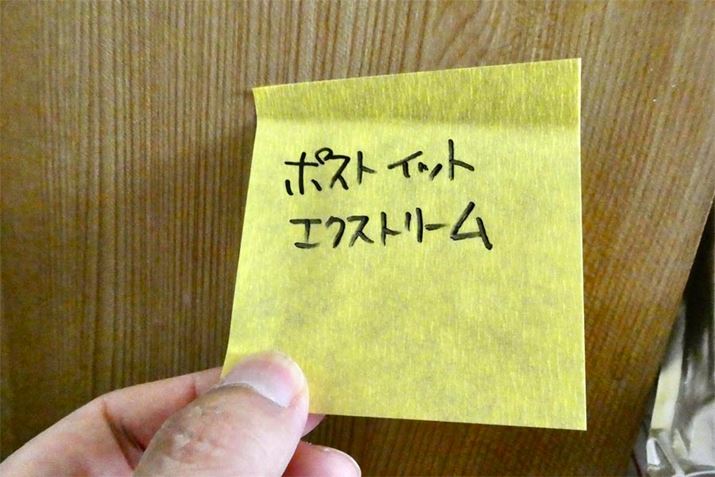 ポストイット
エクストリーム